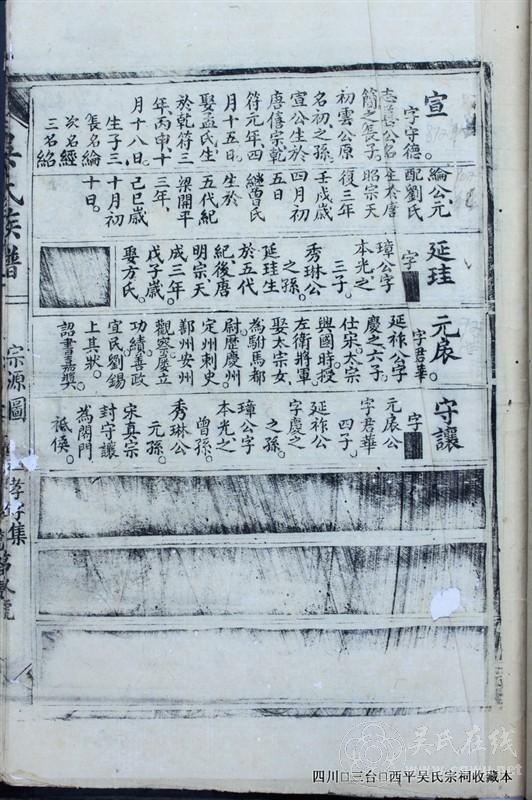 宣
字守德。
簡之長子
初雲公原
名初之孫。
宣公生於
唐僖宗乾
符元年四
月十五日。
娶孟氏生
於乾符三
年丙申十
月十八日。
生子三
長名綸
次名經
三名紹
綸公元
配劉氏
生於唐
昭宗天
復三年
壬戌歲
四月初
五日
繼曹氏
生於
五代紀
梁開平
三年、
己巳歲
十月初
十日。
延珪
字
璋公字
本光、之
三子。
秀琳公
之孫。
延珪生
於五代
紀、後唐
明宗天
成三年。
戊子歲
娶方氏。
元扆
字君華
延祚公字
慶之六子。
仕宋、太宗
興國時、授
左衛將軍、
娶太宗女、
為駙馬都
尉。歷慶州
定州刺史
鄭州安州
觀察、屢立
功績、善政
宣民、劉錫
上其狀。
詔書嘉獎。
守讓
字
元扆公
字君華
四子。
延祚公
字慶之
之孫。
璋公字
本光、之
曾孫。
秀琳公
元孫。
宋真宗
封守讓
為閤門
祗候。
吳氏族譜
宗源圖
孝字集
吴氏在线
www.cnwu.net
四川□三台□西平吴氏宗祠收藏本